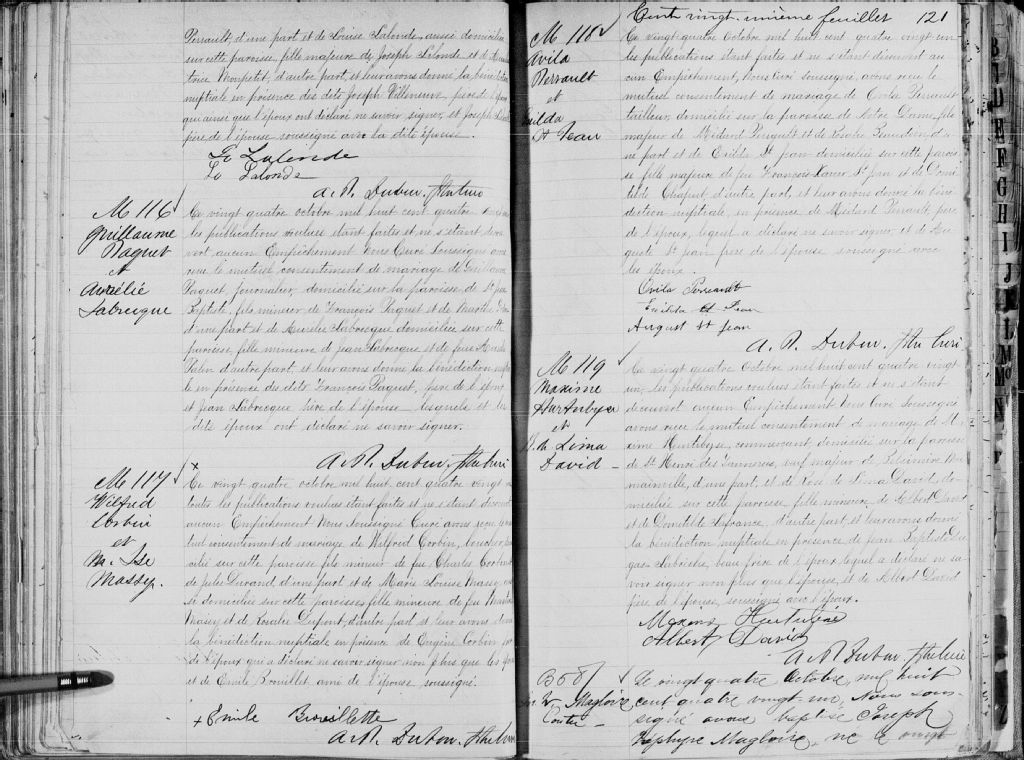 Perrault, d'une part et de Louise Lalonde, aussi domiciliée
sur cette paroisse, fille majeure de Joseph Lalonde et de
Monpetit, d'autre part, et leur avons donné la bénédiction
nuptiale en présence des dits Joseph Villeneuve, père de l'époux
qui ainsi que l'époux ont déclaré ne savoir signer, et Joseph
père de l'épouse soussigné avec la dite épouse.
Ls Lalonde
Ls Lalonde
A. N. Dubuc. Ptre
M 116
Guillaume
Paquet
et
Aurélie
Labrecque
Ce vingt quatre octobre mil huit cent quatre
les publications voulues étant faites et ne s'étant
vert aucun Empêchement Nous Curé Soussigné
reçu le mutuel consentement de mariage de
Paquet, journalier, domicilié sur la paroisse de St
Baptiste, fils mineur de François Paquet et de Marthe
d'une part et de Aurélie Labrecque domiciliée sur cette
paroisse, fille mineure de Jean Labrecque et de feue
d'autre part, et leur avons donné la bénédiction
le en présence des dits François Paquet, père de l'époux
et Jean Labrecque père de l'épouse lesquels et les
dits époux ont déclaré ne savoir signer.
A. N. Dubuc. Ptre Curé
M 117
Wilfrid
Corbin
et
M. Lse
Massy.
Ce vingt quatre octobre mil huit cent quatre vingt
toutes les publications voulues étant faites et ne s'étant
aucun Empêchement Nous Soussigné Curé avons reçu
consentement de mariage de Wilfrid Corbin, boucher,
cilié sur cette paroisse fils mineur de feu Charles Corbin
de Julie Durand, d'une part et de Marie Louise Massy
si domiciliée sur cette paroisse, fille mineure de feu
Massy et de Rosalie Dupont, d'autre part et leur avons
la bénédiction nuptiale en présence de Eugène Corbin
de l'époux qui a déclaré ne savoir signer non plus que les
et de Emile Brouillet ami de l'épouse, soussigné.
+ Emile Brouillette
A. N. Dubuc. Ptre
Cent vingt-unième feuillet 121
M 118
Avila
Perrault
et
Exilda
St Jean
Ce vingt quatre Octobre mil huit cent quatre vingt un
les publications étant faites et ne s'étant découvert au
cun Empêchement, Nous Curé soussigné, avons reçu le
mutuel consentement de mariage de Avila Perrault
tailleur, domicilié sur la paroisse de Notre Dame, fils
majeur de Médard Perrault et de Rosalie Beaudon, d'u
ne part et de Exilda St Jean domiciliée sur cette parois
se fille majeure de feu François Xavier St Jean et de
Chaput, d'autre part, et leur avons donné la béné
diction nuptiale, en présence de Médard Perrault, père
de l'époux, lequel a déclaré ne savoir signer, et de Au
guste St Jean frère de l'épouse soussigné avec
les époux.
Avila Perrault
Exilda St Jean
August St Jean
A. N. Dubuc. Ptre Curé
M 119
Maxime
Hurtubise
et
R. de Lima
David
Ce vingt quatre Octobre mil huit cent quatre vingt
un, les publications voulues étant faites et ne s'étant
découvert aucun Empêchement Nous Curé Soussigné
avons reçu le mutuel consentement de mariage de Ma
xime Hurtubise, commerçant domicilié sur la paroisse
de St Henri des Tanneries, veuf majeur de
d'une part, et de Rose de Lima David, do
miciliée sur cette paroisse, fille mineure, de Albert David
et de Domitilde Lafrance, d'autre part, et leur avons donné
la bénédiction nuptiale en présence de Jean Baptiste Du
gas Labrèche, beau frère de l'époux lequel a déclaré ne sa
voir signer non plus que l'épouse, et de Albert David
père de l'épouse, soussigné avec l'époux.
Maxime Hurtubise
Albert David
A. N. Dubuc. Ptre Curé
B 687
Magloire
Le vingt quatre Octobre mil huit
cent quatre vingt un, Nous sous-
signé avons baptisé Joseph
Zephyre Magloire, né le vingt
B
D
E
F
G
H
I
J
L
M
N
Z